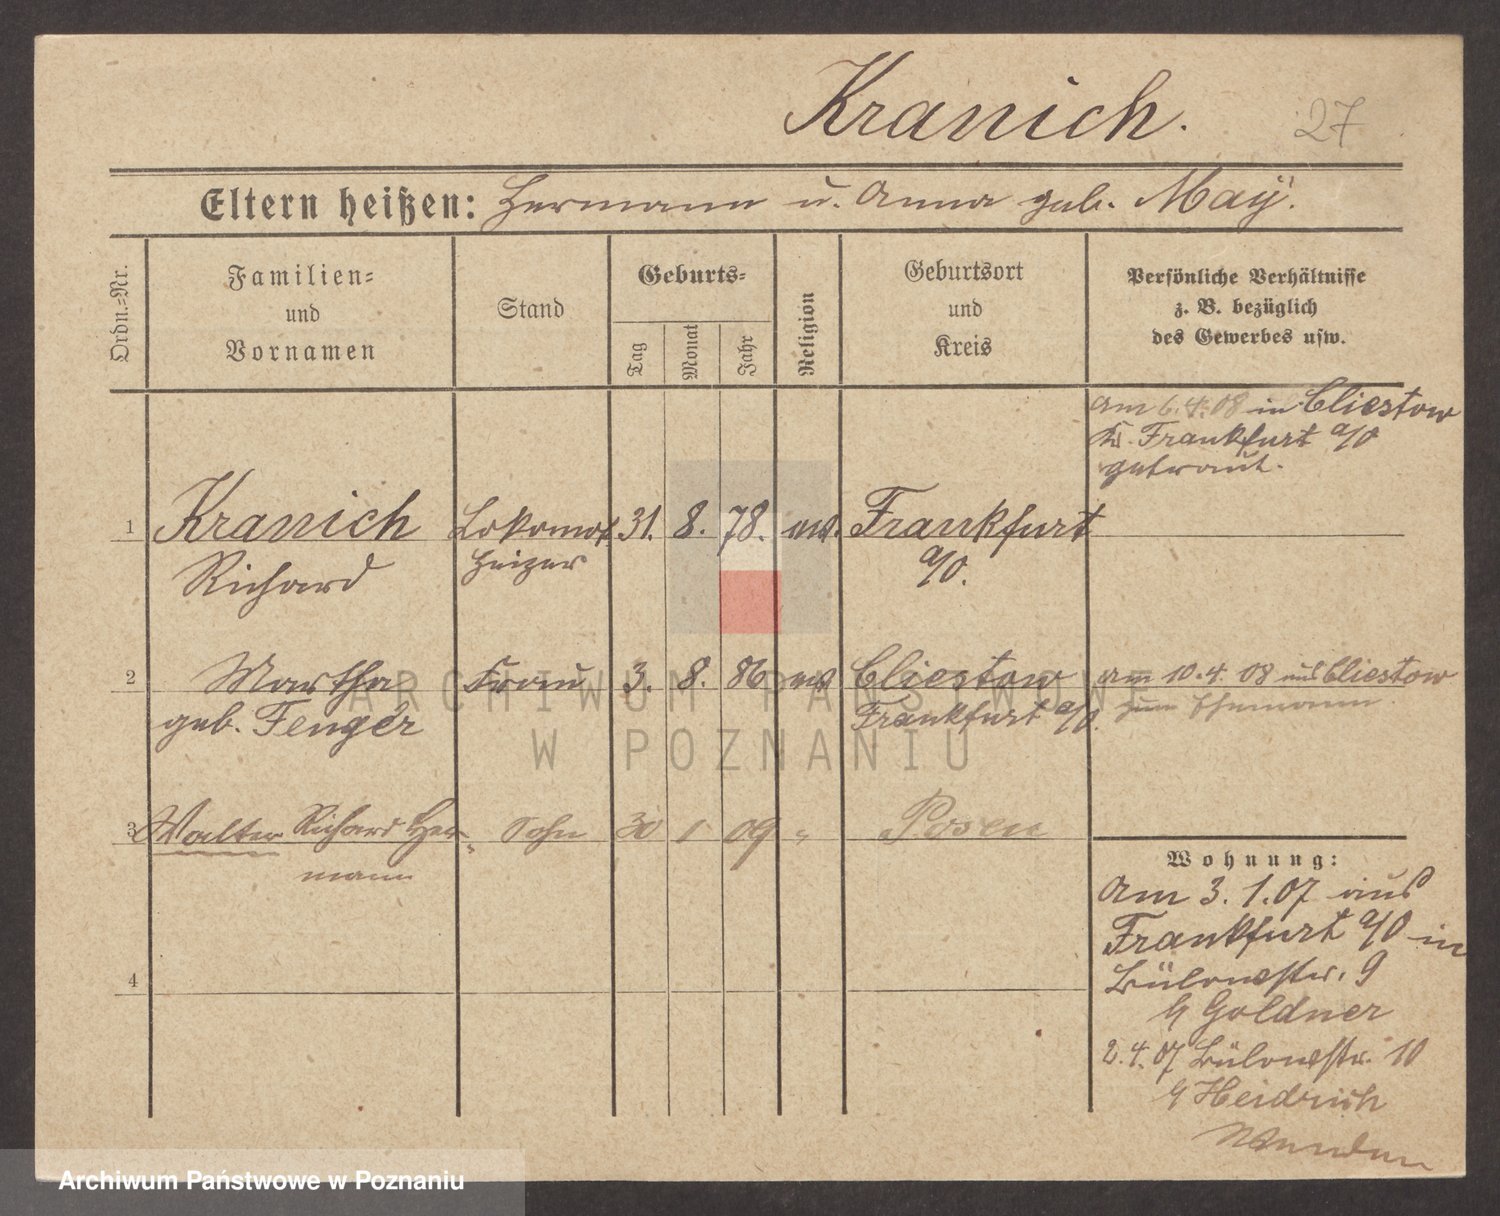 Kranich. 27
Eltern heißen: Hermann u. Anna geb. Maÿ.
Ordn.=Nr.
Familien=
und
Vornamen
Stand
Geburts=
Tag
Monat
Jahr
Religion
Geburtsort
und
Kreis
Persönliche Verhältnisse
z. B. bezüglich
des Gewerbes usw.
am 6.4.08 in Cliestow
Kr. Frankfurt a/O
getraut.
1 Kranich Lokomot. 31. 8. 78. ev. Frankfurt
Richard heizer a/O.
2 Martha Frau 3. 8. 86 ev. Cliestow am 10.4.08 aus Cliestow
geb. Fenger Frankfurt a/O. zum Ehemann.
3 Walter Richard Her= Sohn 30 1 09 " Posen
mann
4
Wohnung:
Am 3.1.07 aus
Frankfurt a/O in
Bülowstr. 9
b/ Goldner
2.4.07 Bülowstr. 10
b/ Heidrich
Wenden
ARCHIWUM PAŃSTWOWE
W POZNANIU
Archiwum Państwowe w Poznaniu